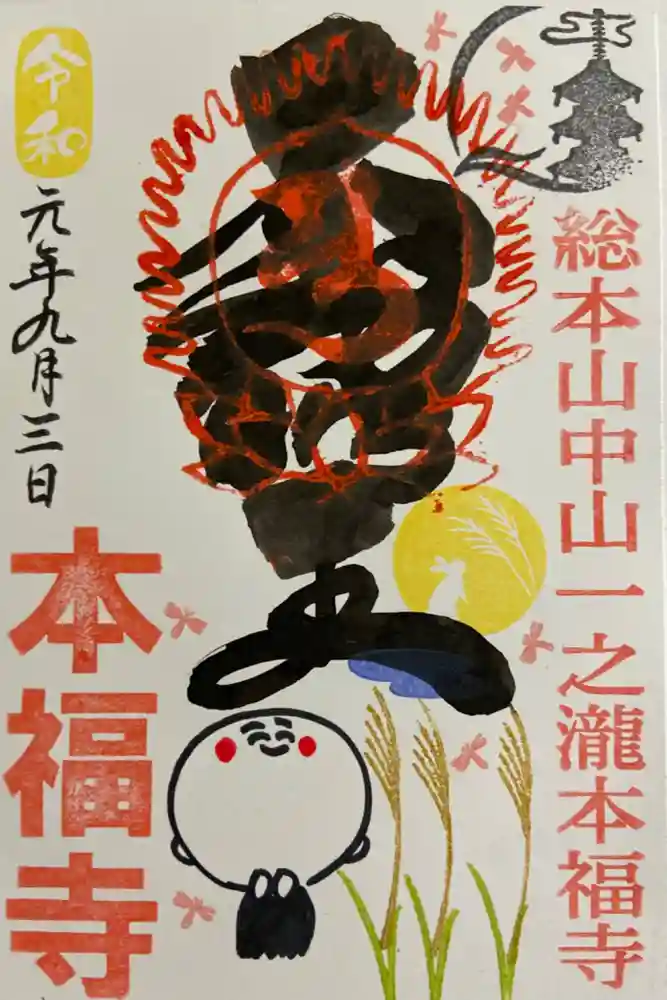 総本山中山一之瀧本福寺
令和
元年九月三日
本福寺